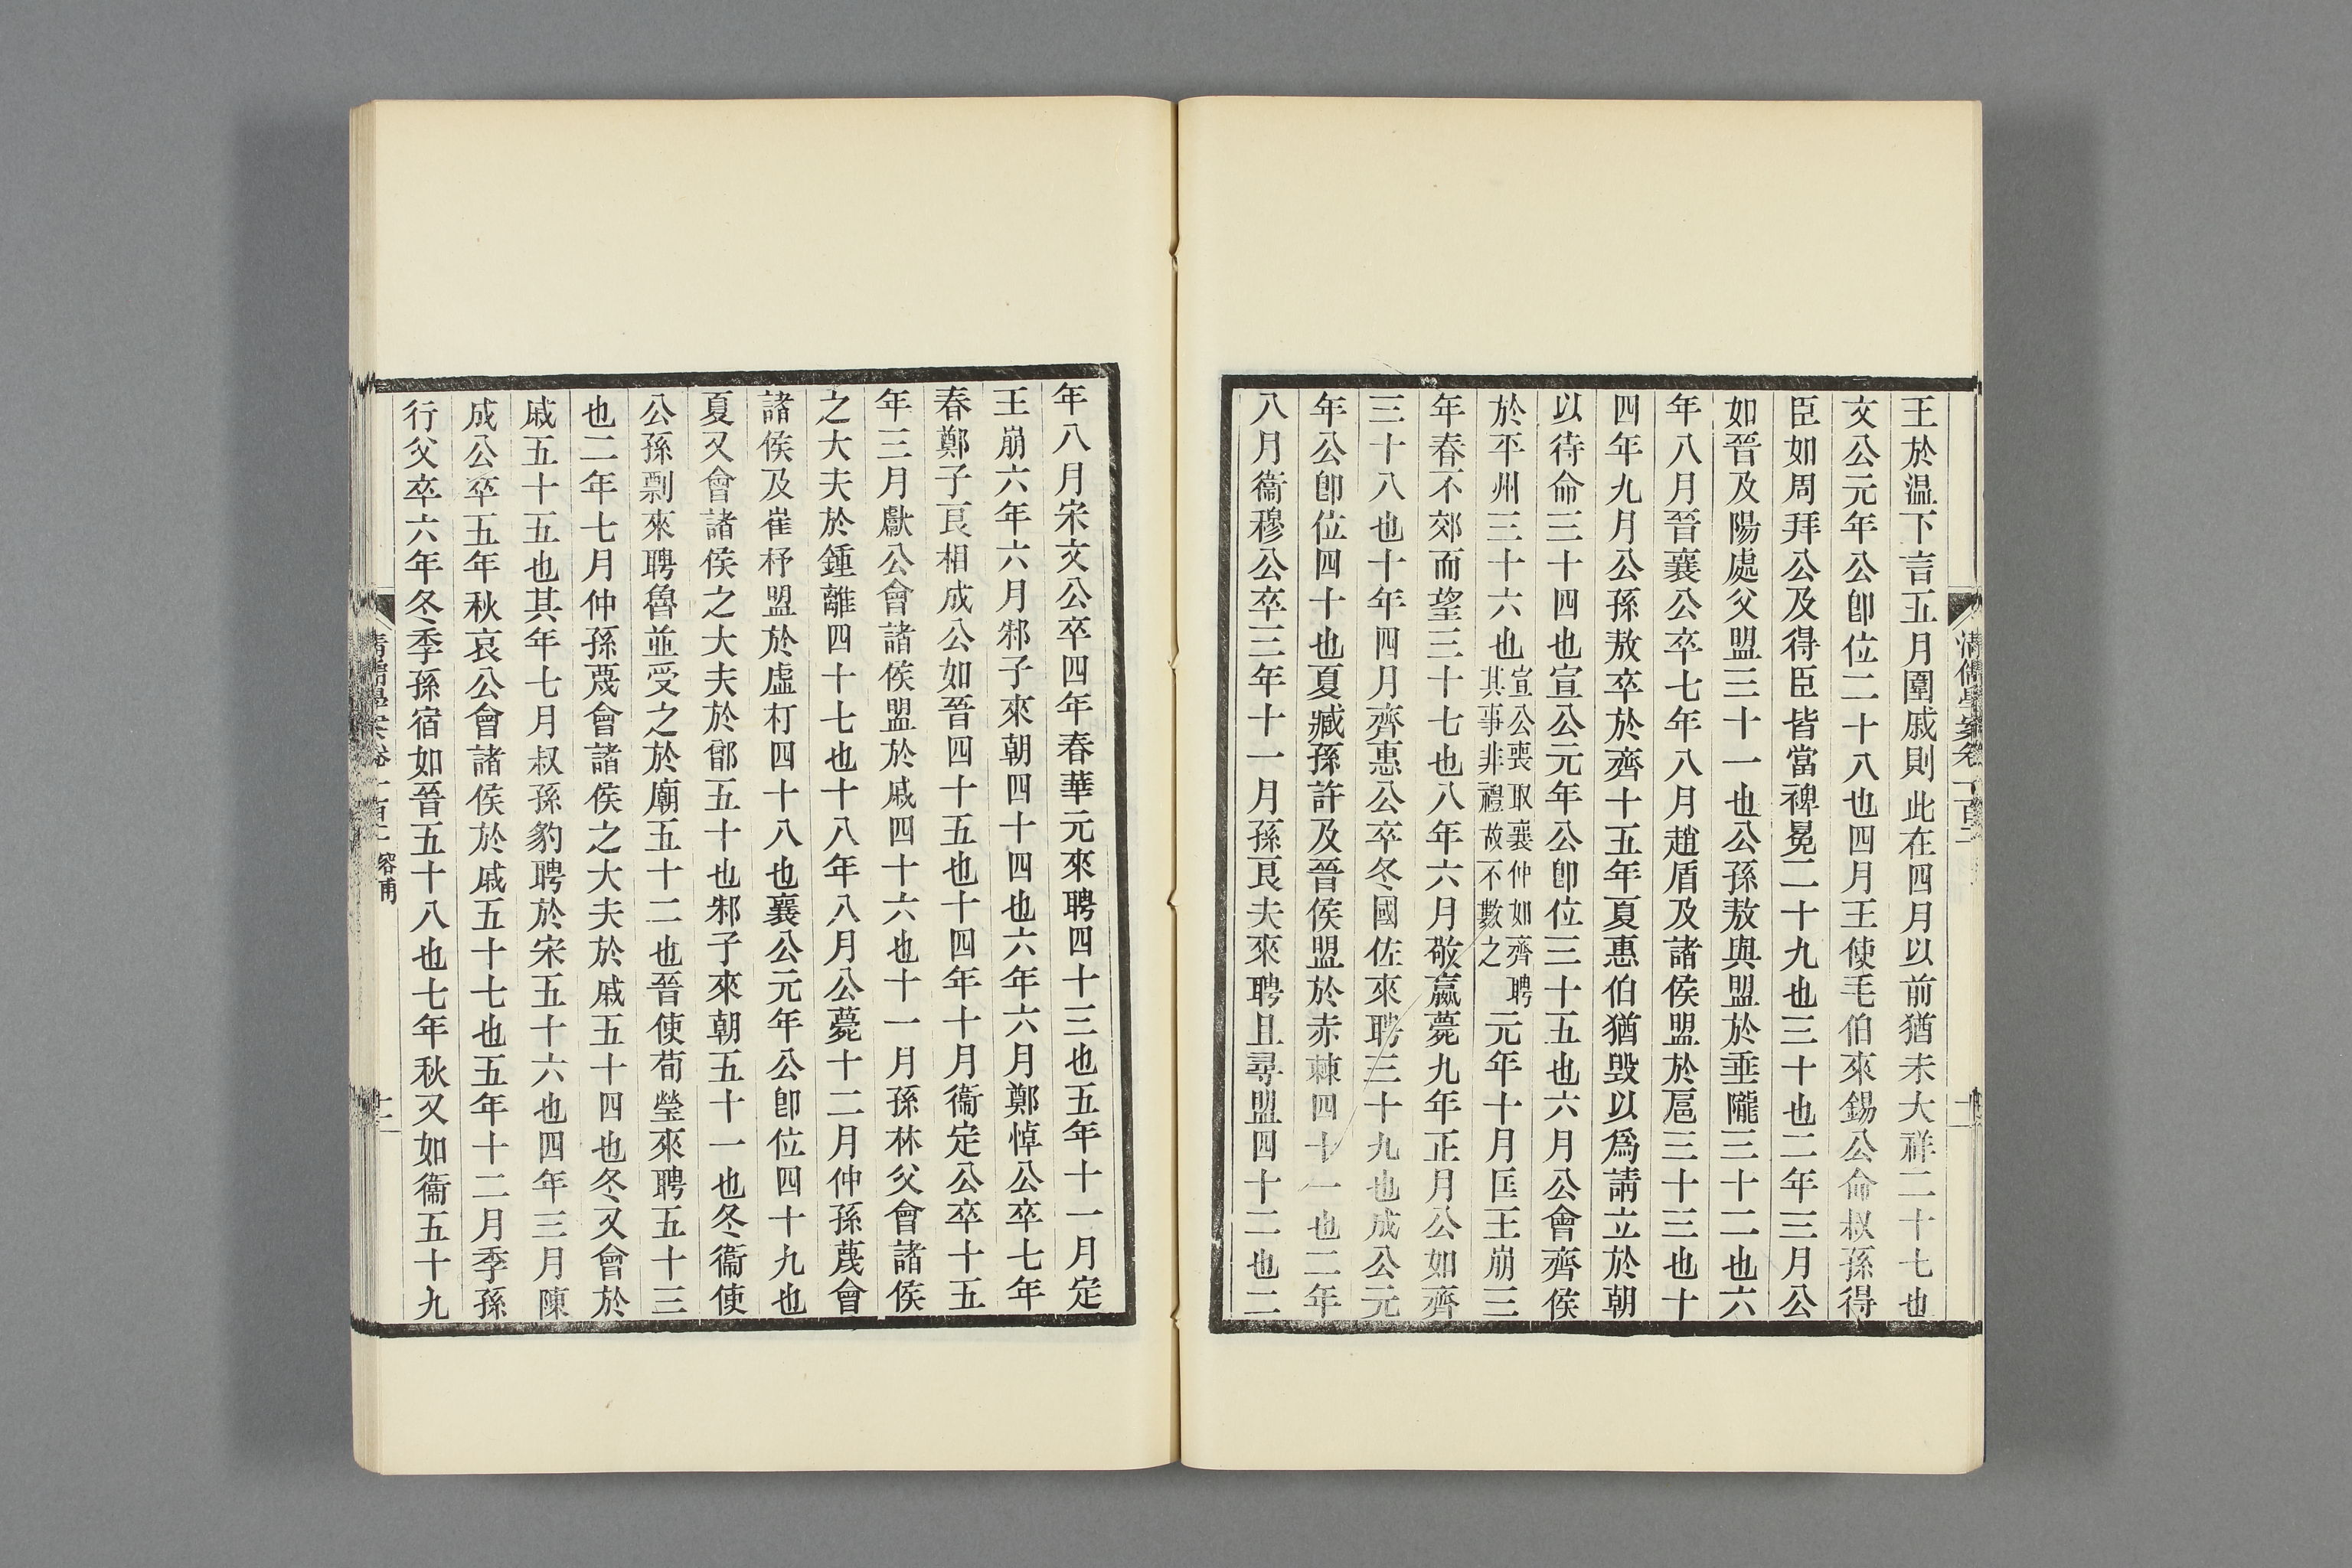 清儒學案卷一百二
王於温下言五月圍戚則此在四月以前猶未大祥二十七也
文公元年公卽位二十八也四月王使毛伯來錫公命叔孫得
臣如周拜公及得臣皆當禆冕二十九也三十也二年三月公
如晉及陽處父盟三十一也公孫敖與盟於垂隴三十二也六
年八月晉襄公卒七年八月趙盾及諸侯盟於扈三十三也十
四年九月公孫敖卒於齊十五年夏惠伯猶毁以爲請立於朝
以待命三十四也宣公元年公卽位三十五也六月公會齊侯
於平州三十六也宣公喪取襄仲如齊聘其事非禮故不數之元年十月匡王崩三
年春不郊而望三十七也八年六月敬嬴薨九年正月公如齊
三十八也十年四月齊惠公卒冬國佐來聘三十九也成公元
年公卽位四十也夏臧孫許及晉侯盟於赤棘四十一也二年
八月衞穆公卒三年十一月孫良夫來聘且尋盟四十二也二
年八月宋文公卒四年春華元來聘四十三也五年十一月定
王崩六年六月邾子來朝四十四也六年六月鄭悼公卒七年
春鄭子良相成公如晉四十五也十四年十月衞定公卒十五
年三月獻公會諸侯盟於戚四十六也十一月孫林父會諸侯
之大夫於鍾離四十七也十八年八月公薨十二月仲孫蔑會
諸侯及崔杼盟於虛朾四十八也襄公元年公卽位四十九也
夏又會諸侯之大夫於鄫五十也邾子來朝五十一也冬衞使
公孫剽來聘魯並受之於廟五十二也晉使荀瑩來聘五十三
也二年七月仲孫蔑會諸侯之大夫於戚五十四也冬又會於
戚五十五也其年七月叔孫豹聘於宋五十六也四年三月陳
成公卒五年秋哀公會諸侯於戚五十七也五年十二月季孫
行父卒六年冬季孫宿如晉五十八也七年秋又如衞五十九
清儒學案卷一百二 容甫